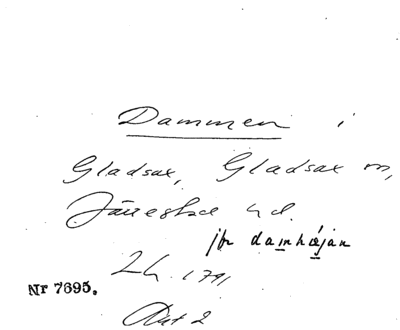 Dammen i
Gladsax, Gladsax sn,
Järrestad hd.
jfr damhæjan
Lh. 1791
Nr 7695.
Akt 2